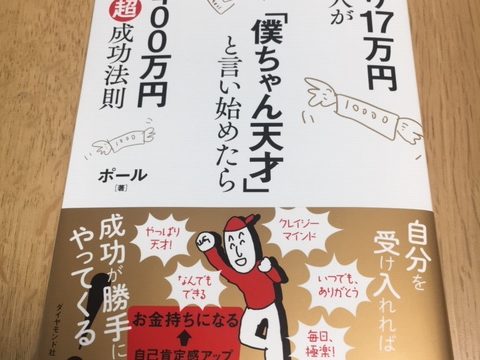 17万円
人が
「僕ちゃん天才」
と言い始めたら
00万円
超成功法則
10000
10000
ポール
[著]
自分を
受け入れれば
成功が勝手に
やってくる
やっぱり
天才!
クレイジー
マインド
なんでも
できる
いつでも、
ありがとう
毎日、
極楽!
お金持ちになる
自己肯定感アップ
ダイヤモンド社